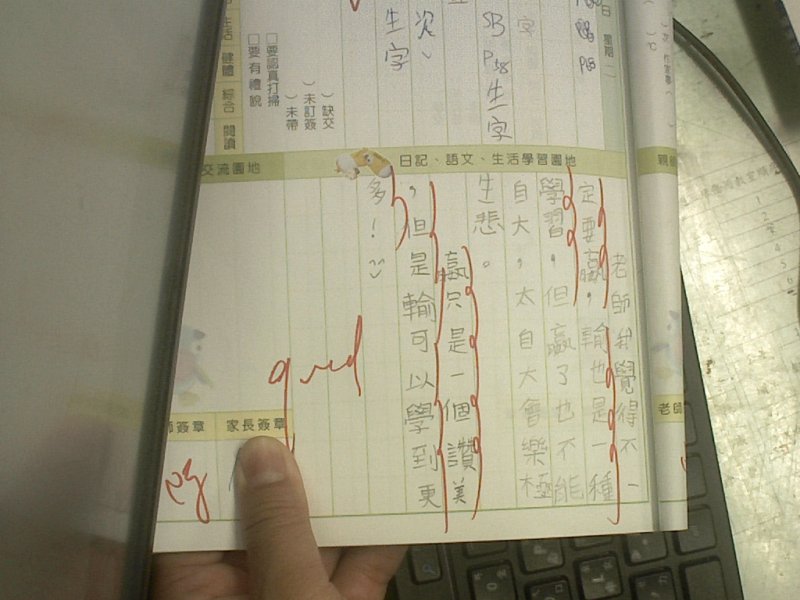 日 星期二
P58
字
SB
P58生字
次、
生字
生活 健體 綜合 閱讀
□要認真打掃
□要有禮貌
)缺交
)未訂簽
)未帶
日記、語文、生活學習園地
交流園地
老師我覺得不一
定要贏,輸也是一種
學習,但贏了也不能
自大,太自大會樂極
生悲。
贏只是一個讚美
,但是輸可以學到更
多!
good
師簽章
家長簽章
老師